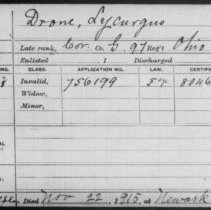 Drone, Lycurgus
Late rank, Cor. Co. G. 97 Reg't Ohio
Enlisted , 1 Discharged
CLASS. APPLICATION NO. LAW. CERTIF
Invalid, 756199 8046
Widow,
Minor,
Died Nov 22, 1915, at Newark